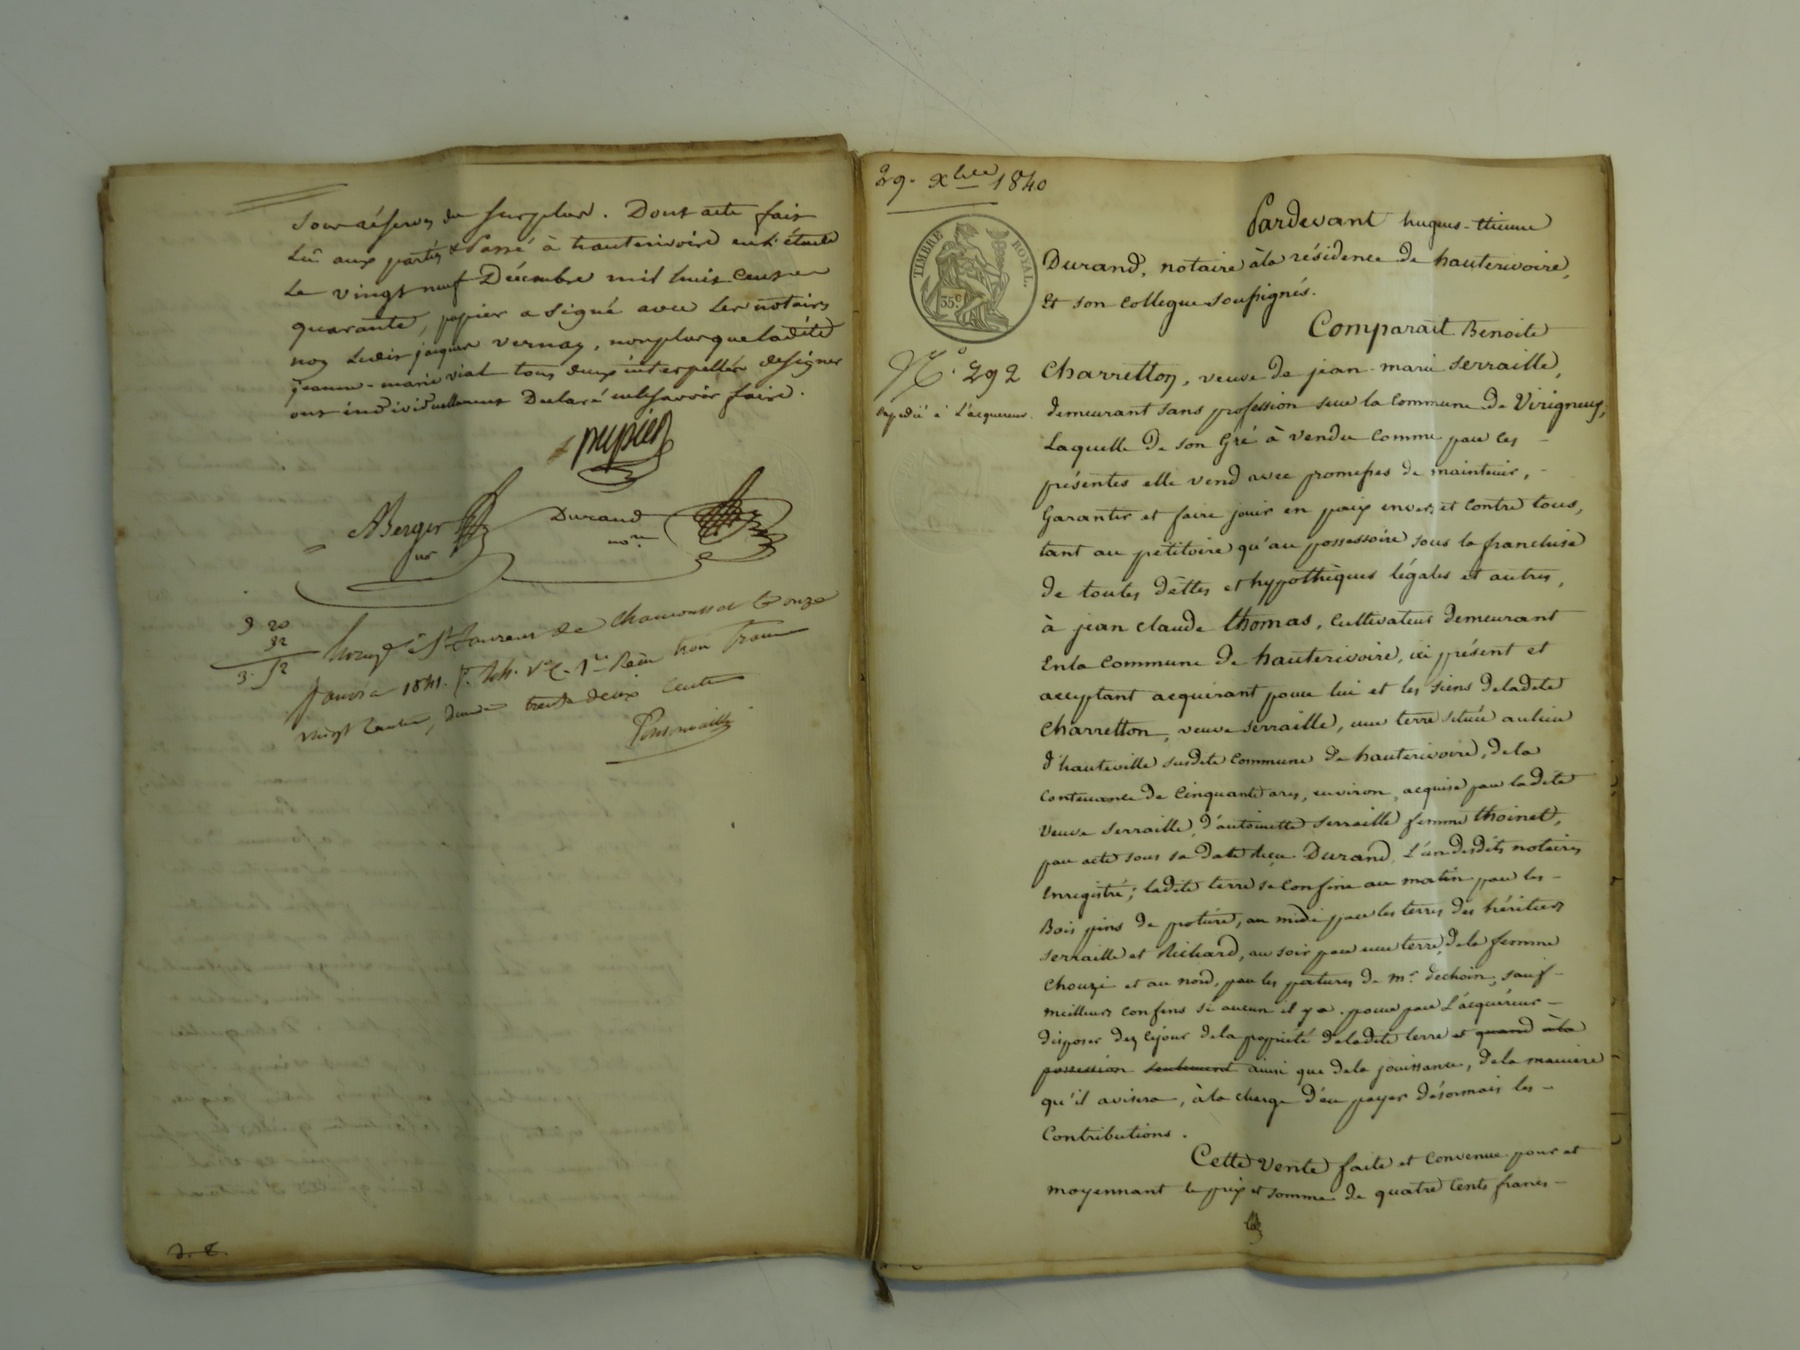 sous réserves du surplus. Dont acte fait
Lû aux parties & Passé à hauterivoire en l'étude
Le vingt neuf Décembre mil huit cent
quarante, pupier a signé avec les notaires
non Ledit jacques vernay, non plus que ladite
jeanne-marie vial tous deux interpellés de signer
ont individuellement Declaré ne le savoir faire.
pupier
ABerger
nre
Durand
nore
3 20
32
3. 52
à St Laurent de Chamousset le onze
Janvier 1841. Reçu trois francs
vingt centimes, trente deux centimes
d. t.
29. Xbre 1840
TIMBRE ROYAL.
35c
Pardevant hugues-ttienne
Durand, notaire à la résidence de hauterivoire,
Et son collegue soussignés.
Comparait Benoite
No. 292 Charretton, veuve de jean-marie serraille,
Expedié à L'acquereur. demeurant sans profession sur la Commune de Virigneux,
Laquelle de son Gré à vendu comme par ces -
présentes elle vend avec promesses de maintenir, -
Garantir et faire jouir en paix envers et contre tous,
tant au pétitoire qu'au possessoire sous la franchise
de toutes dèttes et hypothèques légales et autres,
à jean claude thomas, Cultivateur demeurant
En la commune de hauterivoire, ici présent et
acceptant acquérant pour lui et les siens de ladite
Charretton, veuve serraille, une terre située au lieu
d'hauteville susdite commune de hauterivoire, de la
contenance de Cinquante ares, environ, acquise par ladite
Veuve serraille, d'antoinette serraille femme thoinet,
par acte sous sa date reçu Durand, L'un desdits notaires
Enregistré; ladite terre se confine au matin par les -
Bois pins de poture, au midi par les terres des héritiers
serraille et Richard, au soir par une terre de la femme
Chouzi et au nord, par les patures de mr. dechoin, sauf -
meilleurs confins si aucun il y a. pour par L'acquéreur -
disposer dez cejour de la propriété de ladite terre et quand à la
possession seulement ainsi que de la jouissance, de la maniere
qu'il avisera, à la charge d'en payer désormais les -
Contributions.
Cette vente faite et convenue pour et
moyennant le prix et somme de quatre cents francs -